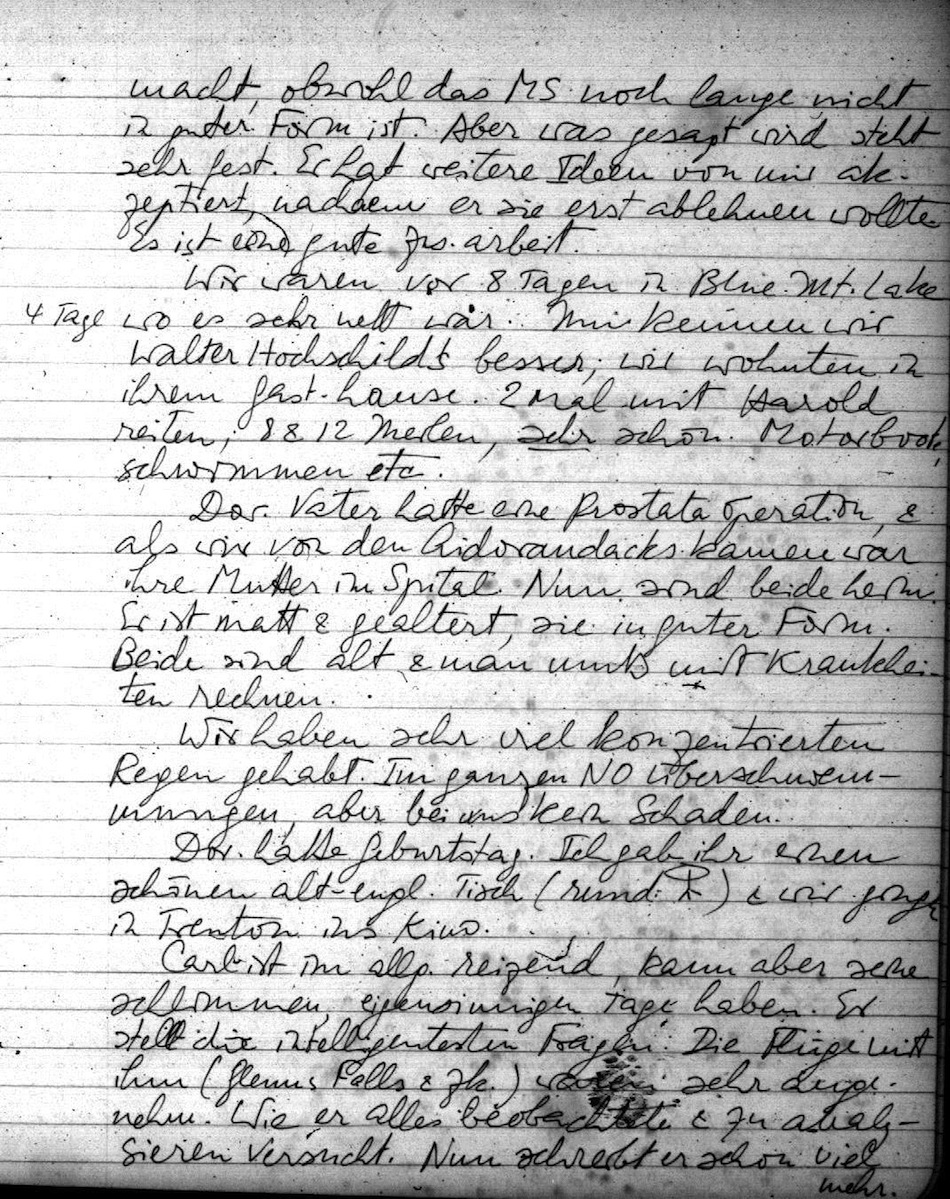 macht, obwohl das MS noch lange nicht
in guter Form ist. Aber was gesagt wird steht
sehr fest. Er hat weitere Ideen von mir ak-
zeptiert, nachdem er sie erst ablehnen wollte.
Es ist eine gute Zus. arbeit.
Wir waren vor 8 Tagen in Blue Mt. Lake
4 Tage wo es sehr nett war. Nun kennen wir
Walter Hochschilds besser, wir wohnten in
ihrem Gast-hause. 2 mal mit Harold
reiten, 8 & 12 Meilen, sehr schön. Motorboot,
schwimmen etc.
Dor. Vater hatte eine Prostata operation, &
als wir von den Aidorandacks kamen war
ihre Mutter im Spital. Nun sind beide heim.
Er ist matt & gealtert, sie in guter Form.
Beide sind alt & man muß mit Krankhei-
ten rechnen.
Wir haben sehr viel konzentrierten
Regen gehabt. Im ganzen NO Überschwem-
mungen, aber bei uns kein Schaden.
Dor. hatte Geburtstag. Ich gab ihr einen
schönen alt-engl. Tisch (rund: ) & wir gingen
in Trenton ins Kino.
Carl ist im allg. reizend, kann aber seine
schlimmen, eigensinnigen Tage haben. Er
stellt die intelligentesten Fragen. Die Flüge mit
ihm (Glenns Falls & zk.) waren sehr ange-
nehm. Wie er alles beobachtete & zu analy-
sieren versucht. Nun schreibt er schon viel
mehr.